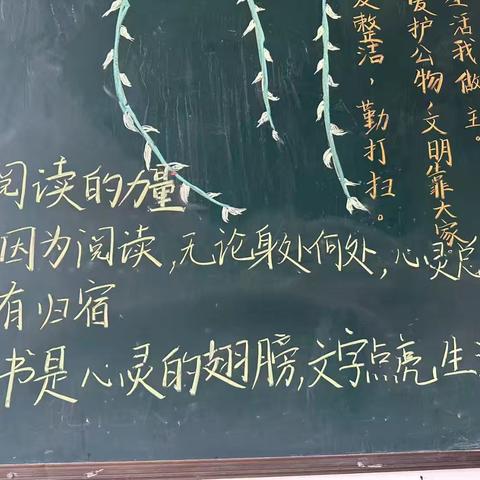 活我做主。
爱护公物,文明靠大家
整洁,勤打扫。
阅读的力量
因为阅读,无论身处何处,心灵总
有归宿
书是心灵的翅膀,文字点亮生